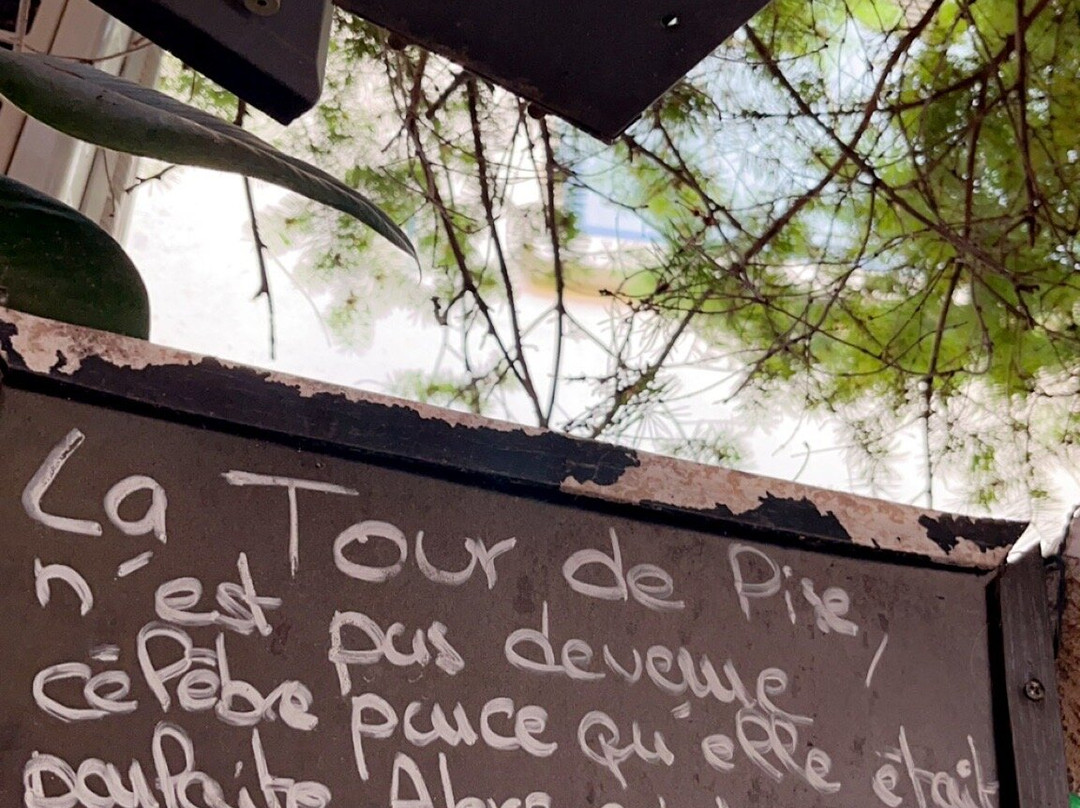 La Tour de Pise,
n'est pas devenue
célèbre parce qu'elle était
parfaite Alors